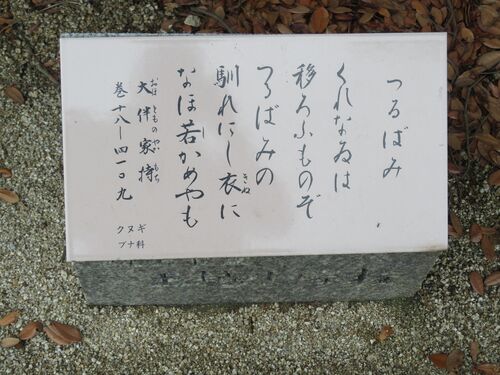 つるばみ
くれなゐは
移ろふものぞ
つるばみの
馴れにし衣に
きぬ
なほ若かめやも
し
おほとものやかもち
大伴家持
巻十八―四一〇九
ブナ科
クヌギ